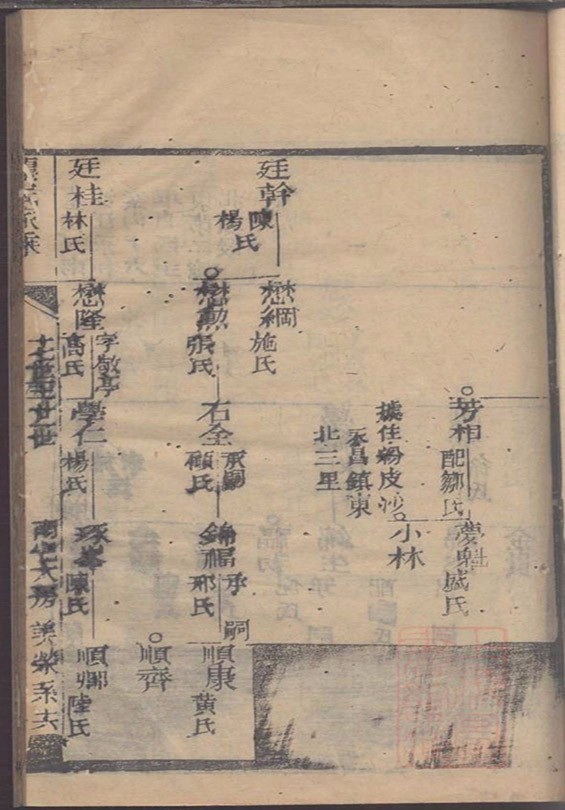 芳相 配鄒氏
據住粉皮沙
永昌鎮東
北三里
夢魁 臧氏
小林
廷幹 陳氏
楊氏
懋綱 施氏
懋勲 張氏
右全 承嗣
顧氏
錦福 承嗣
邢氏
順康 黄氏
順齊
廷桂 林氏
懋隆 字敬亭
髙氏
學仁 楊氏
琢峯 陳氏
順卿 陸氏
十七世至廿一世